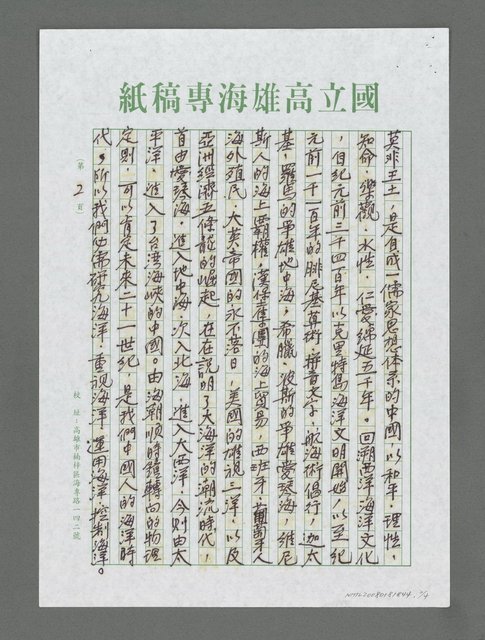 國立高雄海專稿紙
莫非王土，是自成一儒家思想体系的中國，以和平，理性，
知命，樂觀，水性，仁愛綿延五千年。回溯西洋海洋文化
，自紀元前三千四百年以克里特島海洋文明開始，以至紀
元前一千一百年的腓尼基算術，拼音文字，航海術倡行，迦太
基，羅馬的爭雄地中海，希臘，波斯的爭雄愛琴海，維尼
斯人的海上霸權，漢保集團的海上貿易，西班牙，葡萄牙人
海外殖民，大英帝國的永不落日，美國的雄視三洋，以及
亞洲經濟五條龍的崛起，在在說明了大海洋的潮流時代，
首由愛琴海，進入地中海，次入北海，進入大西洋，今則由太
平洋，進入了台灣海峽的中國。由海潮順時鐘轉向的物理
定則，可以肯定未來二十一世紀，是我們中國人的海洋時
代，所以我們必需研究海洋，重視海洋，運用海洋，控制海洋。
（第2頁）
校址：高雄市楠梓區海專路一四二號
NMTL20080181844, 2/4